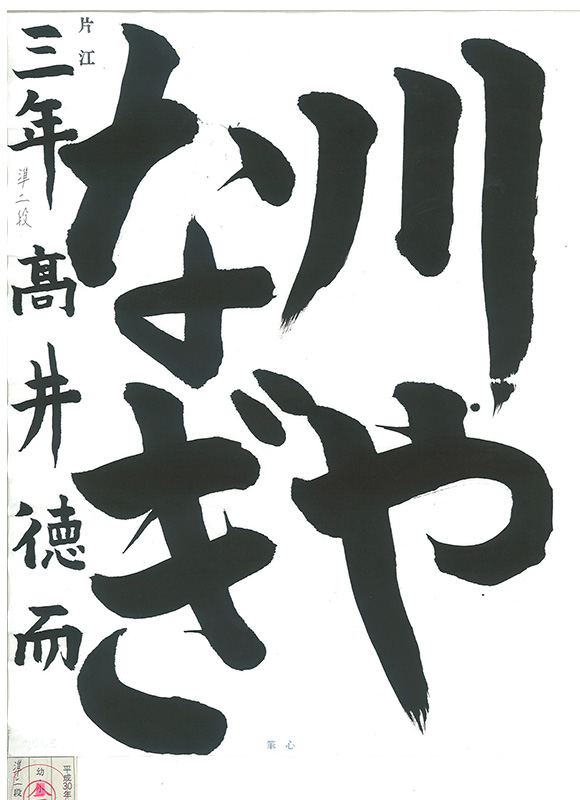 川や
なぎ
片江
三年 髙井徳而
準二段
心筆
平成30年
幼
準二段